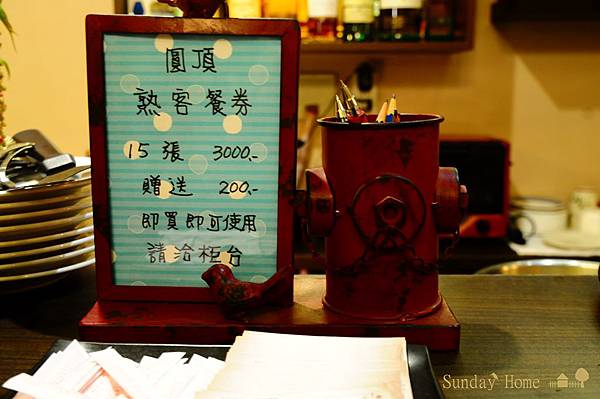 圓頂
熟客餐券
15張 3000.-
贈送 200.-
即買即可使用
請洽柜台
Sunday Home